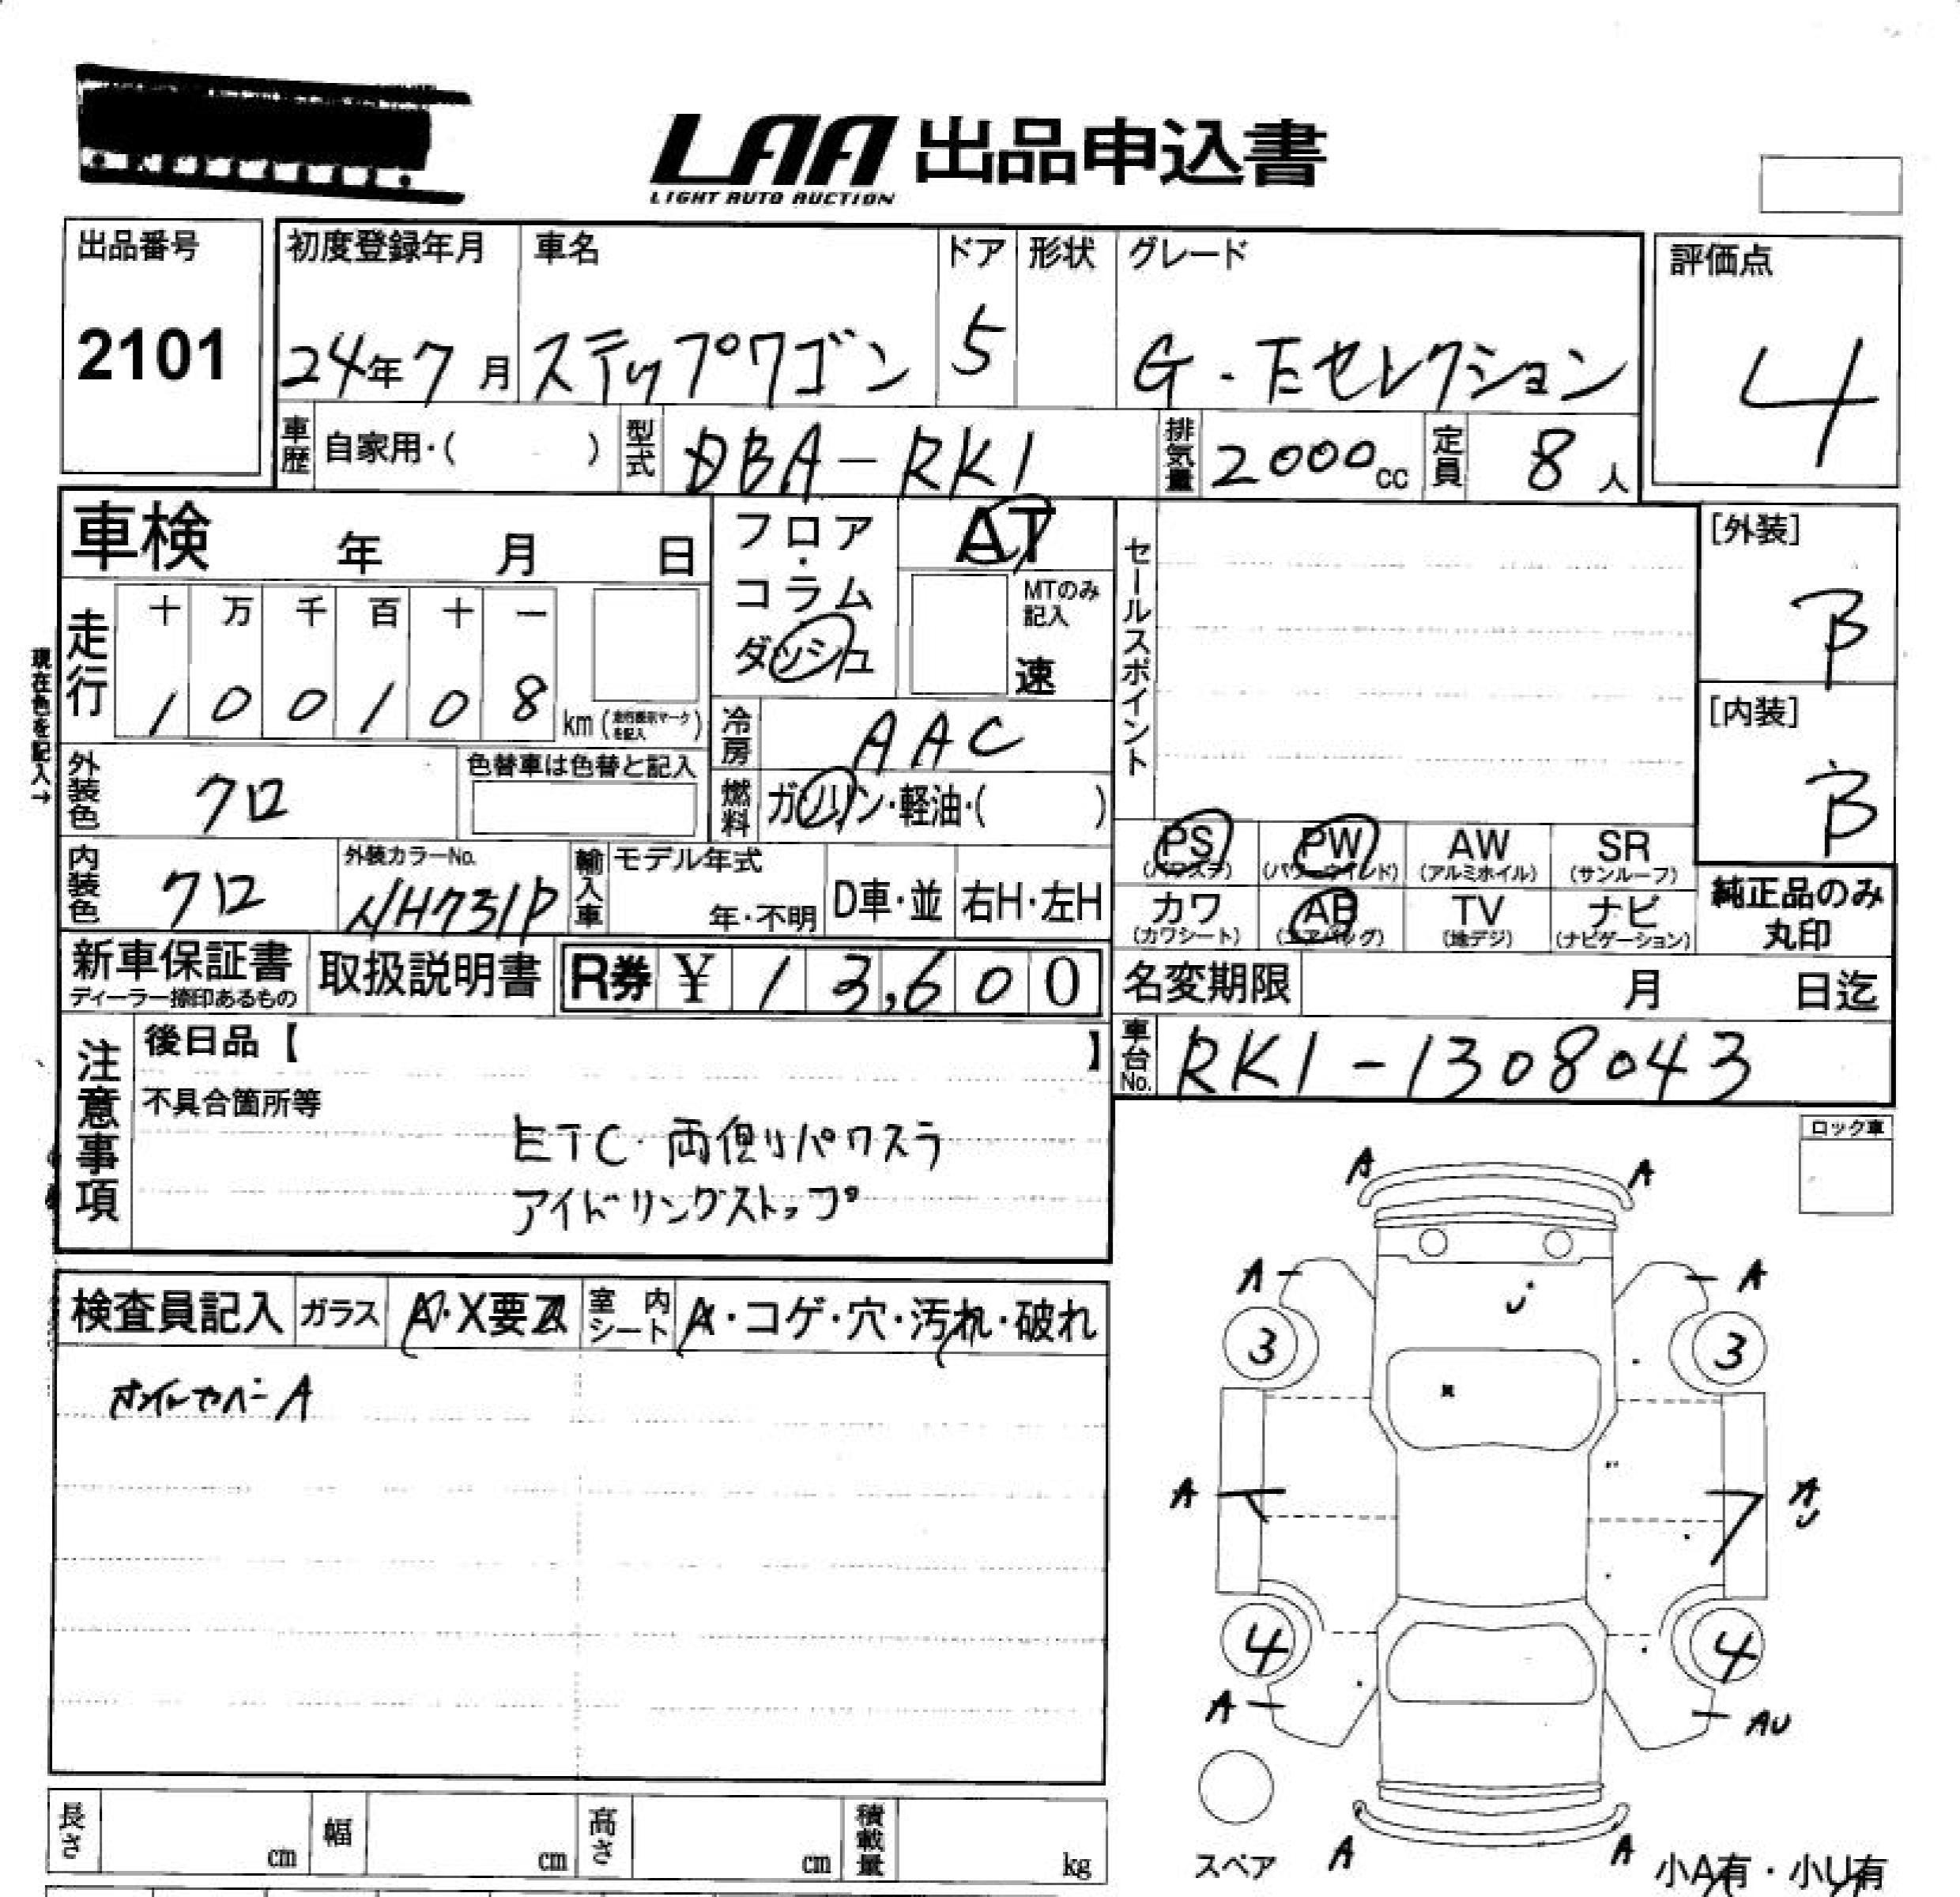 LAA 出品申込書
LIGHT AUTO AUCTION
出品番号 初度登録年月 車名 ドア 形状 グレード 評価点
2101 24年7月 ステップワゴン 5 G・Eセレクション 4
車歴 自家用・( ) 型式 DBA-RK1 排気量 2000cc 定員 8人
車検 年 月 日 フロア・コラム ダッシュ AT
MTのみ記入 速
セールスポイント
[外装] B
走行 十 万 千 百 十 一
1 0 0 1 0 8 km(走行表示マークを記入)
現在色を記入→
[内装] B
冷房 AAC
外装色 クロ 色替車は色替と記入 燃料 ガソリン・軽油・( )
PS AB PW AW SR
(パワステ) (パワーウインド) (アルミホイル) (サンルーフ)
内装色 クロ 外装カラーNo. NH731P 輸入車 モデル年式 年・不明 D車・並 右H・左H
カワ TV ナビ 純正品のみ丸印
(カワシート) (エアバッグ) (地デジ) (ナビゲーション)
新車保証書 取扱説明書 R券 ¥ 13,600 名変期限 月 日迄
ディーラー捺印あるもの
注意事項 後日品【 】 車台No. RK1-1308043
不具合箇所等
ETC・両側パワスラ
アイドリングストップ
ロック車
検査員記入 ガラス A・X要 室内シート A・コゲ・穴・汚れ・破れ
A A
A A
U
3 3
A A U
4 4
A AU
A A
スペア 小A有・小U有
長さ cm 幅 cm 高さ cm 積載量 kg